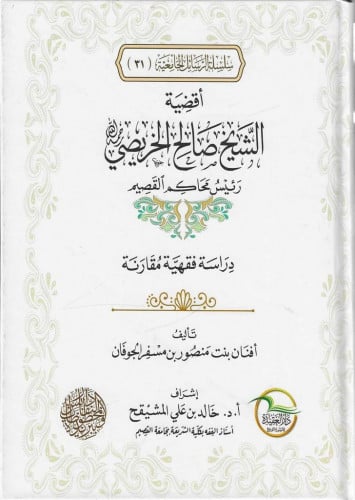 سلسلة الرسائل الجامعية (٣١)
أقضية
الشيخ صالح الخريصي رحمه الله
رئيس محاكم القصيم
دراسة فقهية مقارنة
تأليف
أفنان بنت منصور بن مسفر الجوفان
إشراف
أ.د. خالد بن علي المشيقح
أستاذ الفقه بكلية الشريعة بجامعة القصيم
دار العقيدة